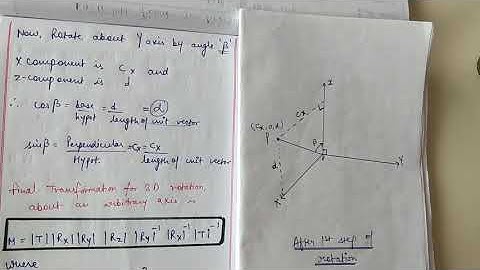 Now, Rotate about Y axis by angle 'β'
X component is Cx and
z-component is d
∴ cosβ = base/hypot = d/length of unit vector = d
sinβ = Perpendicular/Hypot. = Cx/length of unit vector = Cx
Final Transformation for 3D rotation,
about an arbitrary axis is
M = |T| |Rx| |Ry| |Rz| |Ry|⁻¹ |Rx|⁻¹ |T|⁻¹
where
Z
Cx
(Cx,0,d)
P
β
d
Y
X
After 1st step of
rotation